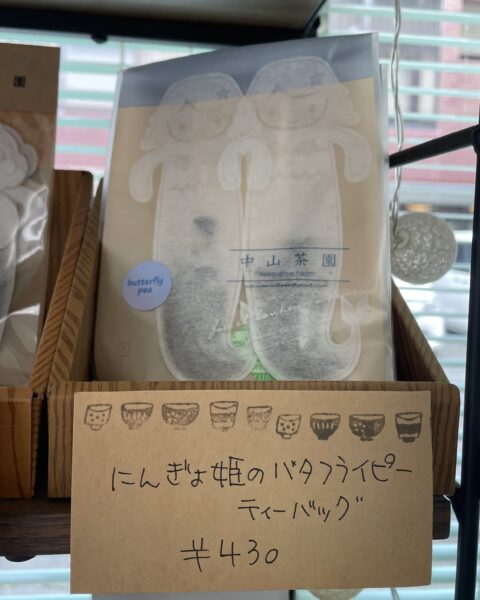 中山茶園
nakayamachaen
butterfly
pea
にんぎょ姫のバタフライピー
ティーバッグ
¥430